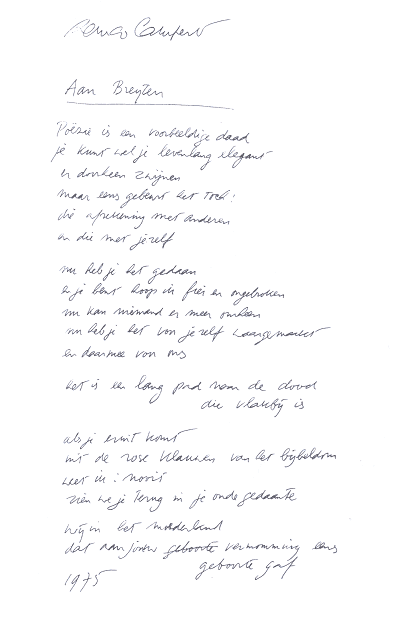 Remco Campert
Aan Breyten
Poëzie is een voorbeeldige daad
je kunt wel je levenlang elegant
er doorheen zwijnen
maar eens gebeurt het toch:
die afrekening met anderen
en die met jezelf
nu heb je het gedaan
en je bent hoop ik fier en ongebroken
nu kan niemand er meer omheen
nu heb je het van jezelf waargemaakt
en daarmee van ons
het is een lang pad naar de dood
die vlakbij is
als je eruit komt
uit de roze klauwen van het bijbeldom
weet ik: nooit
zien we je terug in je oude gedaante
wij in het moederland
dat aan jouw geboorte vermomming eens
geboorte gaf
1975